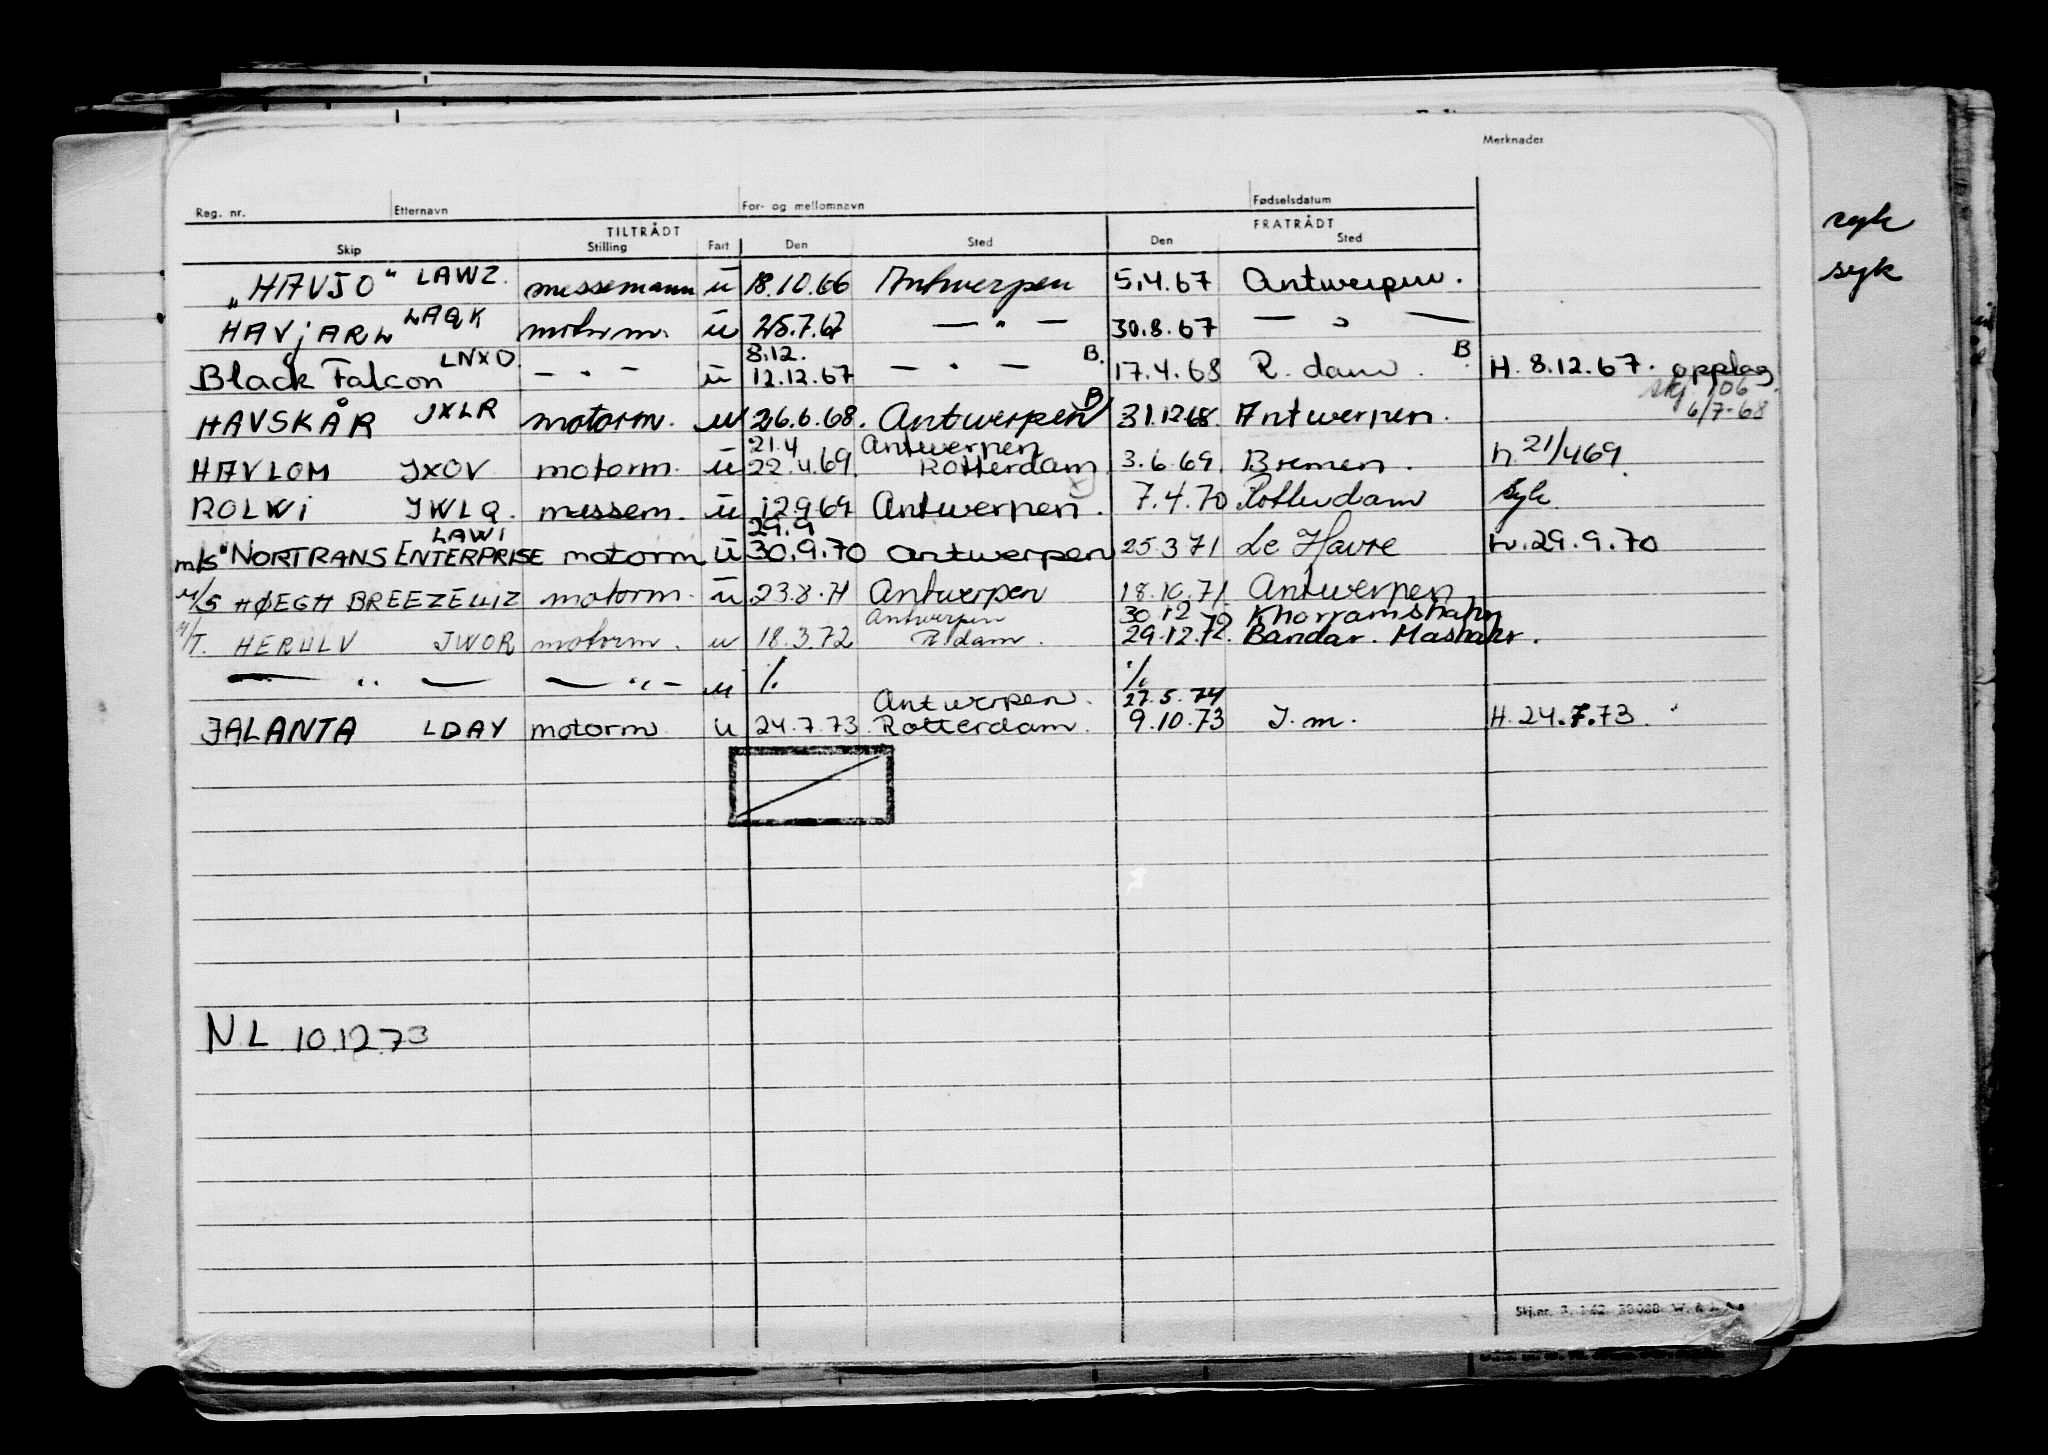 Merknader
Reg. nr. Etternavn For- og mellomnavn Fødselsdatum
TILTRÅDT FRATRÅDT
Skip Stilling Fart Den Sted Den Sted
syk
syk
„HAVJO" LAWZ. messemann ū 18.10.66 Antwerpen 5.4.67 Antwerpen.
HAVJARL LAQK motorm. ū 25.7.67 — " — 30.8.67 — " —
8.12.
Black Falcon LNXO — " — ū 12.12.67 — " — B. 17.4.68 R. dam. B H. 8.12.67. opplag
skj 106
6/7-68
HAVSKÅR JXLR motorm. u 26.6.68. Antwerpen B 31.12 68. Antwerpen.
21.4 Antwerpen
HAVLOM JXOV motorm. ū 22.4.69. Rotterdam 3.6.69. Bremen. h. 21/4 69.
ROLWI JWLQ. messem. ū 12.9 69 Antwerpen. 7.4.70 Rotterdam syk.
LAWI 29.9
m/s "NORTRANS ENTERPRISE motorm ū 30.9.70 Antwerpen 25.3 71 Le Havre h. 29.9.70
M/S HØEGH BREEZE motorm. ū 23.8.71 Antwerpen 18.10.71 Antwerpen
Antwerpen 30.12 72 Khorramshahr
M/T. HERULV JWOR motorm. u 18.3.72 R.dam. 29.12.72. Bandar. Mashahr.
— " — — " — u ./. ./.
Antwerpen. 27.5.74
JALANTA LDAY motorm u 24.7.73 Rotterdam. 9.10.73 J.m. H. 24.7.73.
N.L. 10.12.73
Skj.nr. 3.